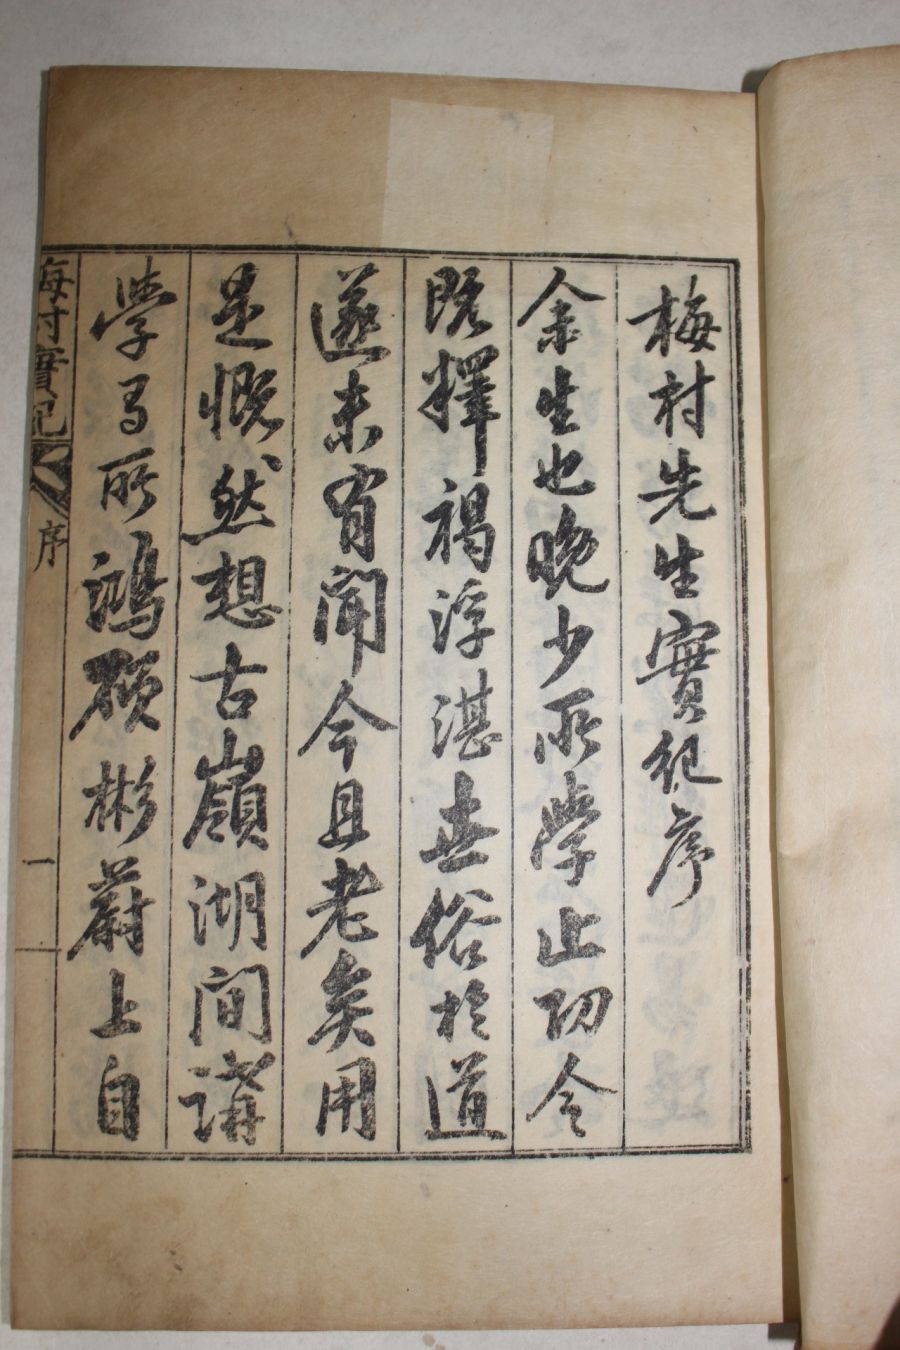 梅村先生實紀序
余生也晚少所學止功令
既釋褐浮湛世俗於道
遂未有聞今且老矣用
是慨然想古嶺湖間講
學多所鴻碩彬蔚上自
梅村實記
序
一